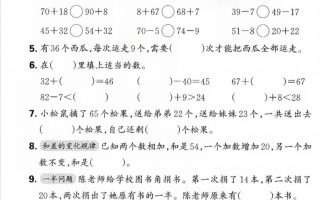 70+18○90+8 80+7○68+7 39-7○49-17
45+32○54+32 67-8○68-7 51-8○20+22
5. 有36个西瓜,每次运走9个,需要( )次才能把西瓜全部运走。
6. 在( )里填上适当的数。
32+( )=46 ( )-40=45 67+( )=87
82-7<( ) ( )+9>24 ( )+8<28
7. 小松鼠摘了65个松果,送给弟弟22个,送给妹妹23个,一共送出去
( )个松果,自己还剩( )个松果。
8. 和差的变化规律 已知两个数相加,和是54,一个加数增加20,另一个加
数不变,和是( )。
9. 一半问题 陈老师给学校图书角捐书。第一次捐了14本,第二次捐了
20本,两次捐出了她原有书的一半。陈老师原来有( )本书。